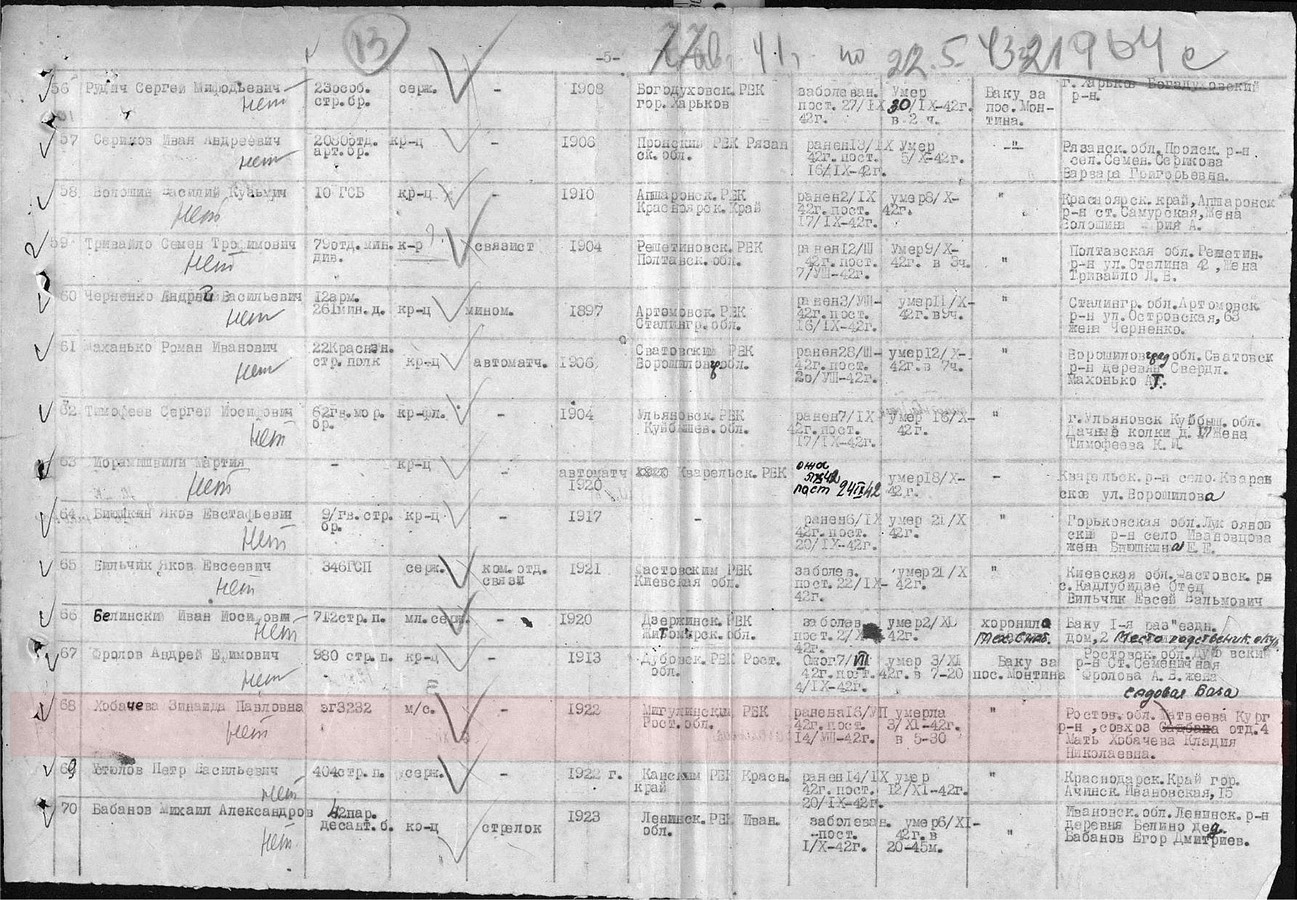 13
-5-
22.5.
56 Рудич Сергей Мифодьевич 23особ. серж. - 1908 Богодуховск.РВК заболеван. Умер Баку за г.Харьков Богодуховский
нет стр.бр. гор.Харьков пост.27/IX 30/IX-42г. пос.Мон- р-н.
42г. в 2 ч. тина.
57 Сериков Иван Андреевич 208отдт. кр-ц - 1906 Пронский РВК Рязан ранен13/IX Умер -"- Рязанск.обл.Пронск.р-н
нет арт.бр. ск.обл. 42г.пост. 5/X-42г. сел.Семен.Серикова
16/IX-42г. Варвара Григорьевна.
58 Волошин Василий Кузьмич 10 ГСБ кр-ц - 1910 Апшаронск.РВК ранен2/IX умер8/X- " Красноярск.край,Апшаронск
нет Красноярск.Край 42г.пост. 42г. р-н ст.Самурская,жена
17/IX-42г. Волошина А.
59 Тривайло Семен Трофимович 79отд.мин. к-р связист 1904 Решетиновск.РВК ранен12/Ш Умер9/X- " Полтавская обл.Решетин.
нет див. Полтавск.обл. 42г.пост. 42г. в 3ч. р-н ул.Сталина 42 ,жена
7/УШ-42г. Тривайло Л.Е.
60 Черненко Андрей Васильевич 12арм. кр-ц мином. 1897 Артомовск.РВК ранен3/УШ- умер11/X- " Сталингр.обл.Артомовск
нет 261мин.д. Сталингр.обл. 42г.пост. 42г.в9ч. р-н ул.Островская,63
16/IX-42г. жена Черненко.
61 Маханько Роман Иванович 22Краснзн. кр-ц автоматч. 1906 Сватовский РВК ранен28/Ш- умер12/X- " Ворошиловградобл.Сватовск
нет стр.полк Ворошиловгр.обл. 42г.пост. 42г.в 7ч. р-н деревня Свердл.
20/УШ-42г. Махонько А.Т.
62 Тимофеев Сергей Иосифович 62гв.мор. кр-фл. - 1904 Ульяновск.РВК ранен7/IX умер 16/X- " г.Ульяновск Куйбыш.обл.
нет бр. Куйбышев.обл. 42г.пост. 42г. Дачные колки д.17жена
17/IX-42г. Тимофеева К.И.
63 Иорамишвили Мартия - кр-ц автоматч Кварельск.РВК ожог умер18/X- - Кварельск.р-н село.Кваран
нет 1920 пост 24IX42 42г. ское ул.Ворошилова
64 Бишкин Яков Евстафьевич 9/гв.стр. кр-ц - 1917 - ранен6/IX умер 21/X " Горьковская обл.Лукоянов
нет бр. 42г.пост. 42г. ский р-н село Ивановцова
20/IX-42г. жена Бишкина Е.Е.
65 Вильчик Яков Евсеевич 346ГСП серж. ком.отд. 1921 Фастовским РВК заболев. умер21/X " Киевская обл.Фастовск.рн
нет связи Киевская обл. пост.22/IX- 42г. с.Кадлубидзе Отец
42г. Вильчик Евсей Вальмович
66 Белинский Иван Иосифович 712стр.п. мл.серж. 1920 Дзержинск.РВК заболев. умер2/XI хоронила Баку 1-я раз"ездн.
нет Житомирск.обл. пост.2/X 42г. дом,2
42г.
67 Фролов Андрей Ефимович 980 стр.п. кр-ц - 1913 Дубовск.РВК Рост. Ожог7/УП умер 3/XI Баку за Ростовск.обл.Дубовский
нет обл. 42г.пост. 42г.в 7-20 пос.Монтина р-н Ст.Семеничная
4/IX-42г. Фролова А.В.жена
садовая база
68 Хобачева Зинаида Павловна эг3232 м/с. - 1922 Мигулинский РВК ранена15/УП умерла " Ростов.обл.Матвеева Кург
нет Рост.обл. 42г.пост. 3/XI-42г. р-н ,совхоз отд.4
14/УШ-42г. в 5-30 Мать Хобачева Клавдия
Николаевна.
69 Утюлов Петр Васильевич 404стр.п. серж. - 1922 г. Канским РВК Красн. ранен14/IX умер " Краснодарск.Край гор.
нет край 42г.пост. 12/XI-42г. Ачинск.Ивановская,15
20/IX-42г.
70 Бабанов Михаил Александров 42пар. кр-ц стрелок 1923 Ленинск.РВК Иван. заболеван. умер6/XI- " Ивановск.обл.Ленинск.р-н
нет десант.б. обл. -пост. 42г.в деревня Белино дед.
1/X-42г. 20-45м. Бабанов Егор Дмитриев.